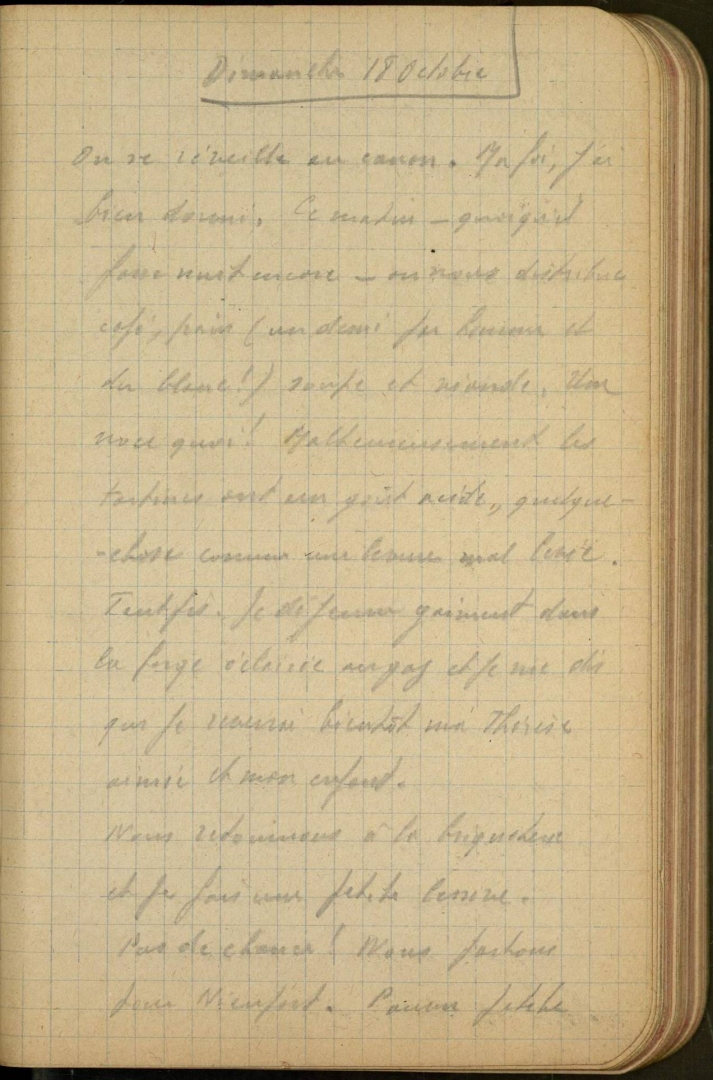 Dimanche 18 Octobre
On se réveille au canon. Ma foi, j'ai
bien dormi. Ce matin – quoiqu'il
fasse nuit encore – on nous distribue
café, pain (un demi par homme et
du blanc!) soupe et viande. Une
noce quoi! Malheureusement les
tartines ont un goût acide, quelque-
-chose comme une levure mal levée.
Tant pis. Je déjeune gaiment dans
la forge éclairée au gaz et je me dis
que je reverrai bientôt ma Thérèse
aimée et mon enfant.
Nous retournons à la briqueterie
et je fais une petite lessive.
Pas de chance! Nous partons
pour Nieuport. Pauvre petite